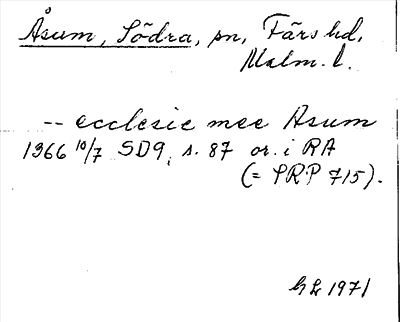 Åsum, Södra, pn, Färs hd,
Malm. l.
-- ecclesie mee Asum
1366 10/7 SD9, s. 87 or. i RA
(= SRP 715).
GL 1971